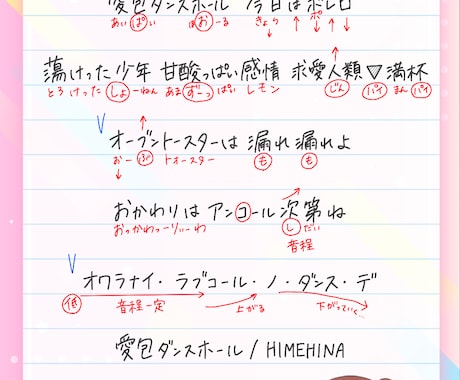 愛包ダンスホール 今日はボレロ
あい ぱい ほおーる きょら ボ
蕩けった少年 甘酸っぱい感情 求愛人類▽満杯
とろ けった しょーねん あま ずーっ ぱい レモン じん パイ まん パイ
V オーブントースターは 漏れ漏れよ
おー ぶ トオースター も も
おかわりは アンコール次第ね
おっかわっーりぃーわ しだい
音程
V オワラナイ・ラブコール・ノ・ダンス・デ
低 音程一定 上がる 下がっていく…
愛包ダンスホール / HIMEHINA